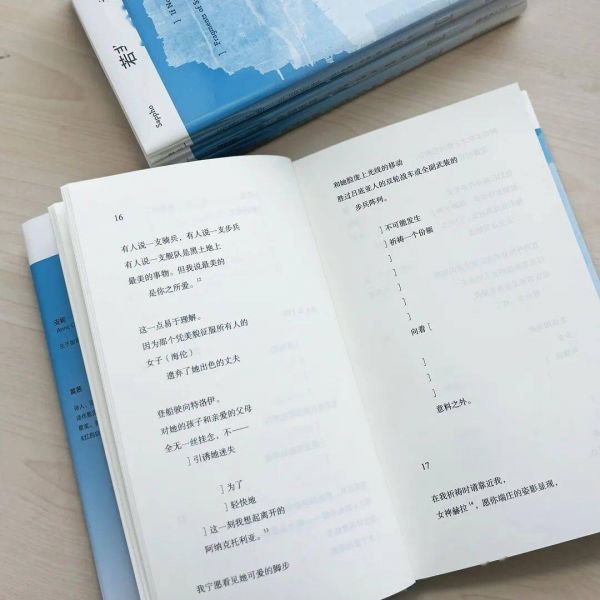 若非
Sappho
] If No
] Fragments of S
16
有人说一支骑兵，有人说一支步兵
有人说一支舰队是黑土地上
最美的事物。但我说最美的
是你之所爱。¹²
这一点易于理解。
因为那个凭美貌征服所有人的
女子（海伦）
遗弃了她出色的丈夫
登船驶向特洛伊。
对她的孩子和亲爱的父母
全无一丝挂念，不——
] 引诱她迷失
] 为了
] 轻快地
] 这一刻我想起离开的
阿纳克托利亚。¹³
我宁愿看见她可爱的脚步
和她脸庞上光线的移动
胜过吕底亚人的双轮战车或全副武装的
步兵阵列。
] 不可能发生
] 祈祷一个份额
]
]
]
]
]
向着 [
]
]
]
意料之外。
17
在我祈祷时请靠近我，
女神赫拉¹⁴，愿你端庄的姿影显现，